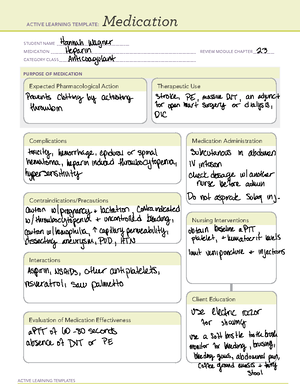 ACTIVE LEARNING TEMPLATE: Medication
STUDENT NAME Hannah Wagner
MEDICATION Heparin REVIEW MODULE CHAPTER 23
CATEGORY CLASS Anticoagulant
PURPOSE OF MEDICATION
Expected Pharmacological Action
Prevents Clotting by activating
thrombin
Therapeutic Use
Stroke, PE, massive DVT, an adjunct
for open heart surgery or dialysis,
DIC
Complications
toxicity, hemorrhage, epidural or spinal
hematoma, heparin induced thrombocytopenia,
hypersensitivity
Medication Administration
Subcutaneous in abdomen
IV infusion
check dosage w/ another
nurse before admin
Do not aspirate Subq inj.
Contraindications/Precautions
caution w/ pregnancy + lactation, Contraindicated
w/ thrombocytopenia + uncontrolled bleeding,
caution w/ hemophilia, ↑ capillary permeability,
dissecting aneurysm, PUD, HTN
Nursing Interventions
obtain baseline aPTT
platelet, + hematocrit levels
limit venipuncture + injections
Interactions
Aspirin, NSAIDs, other antiplatelets,
resveratrol, saw palmetto
Client Education
use electric razor
for shaving
use a soft bristle toothbrush
monitor for bleeding, bruising,
bleeding gums, abdominal pain,
coffee ground emesis + tarry
stool
Evaluation of Medication Effectiveness
aPTT of 60-80 seconds
absence of DVT or PE
ACTIVE LEARNING TEMPLATES